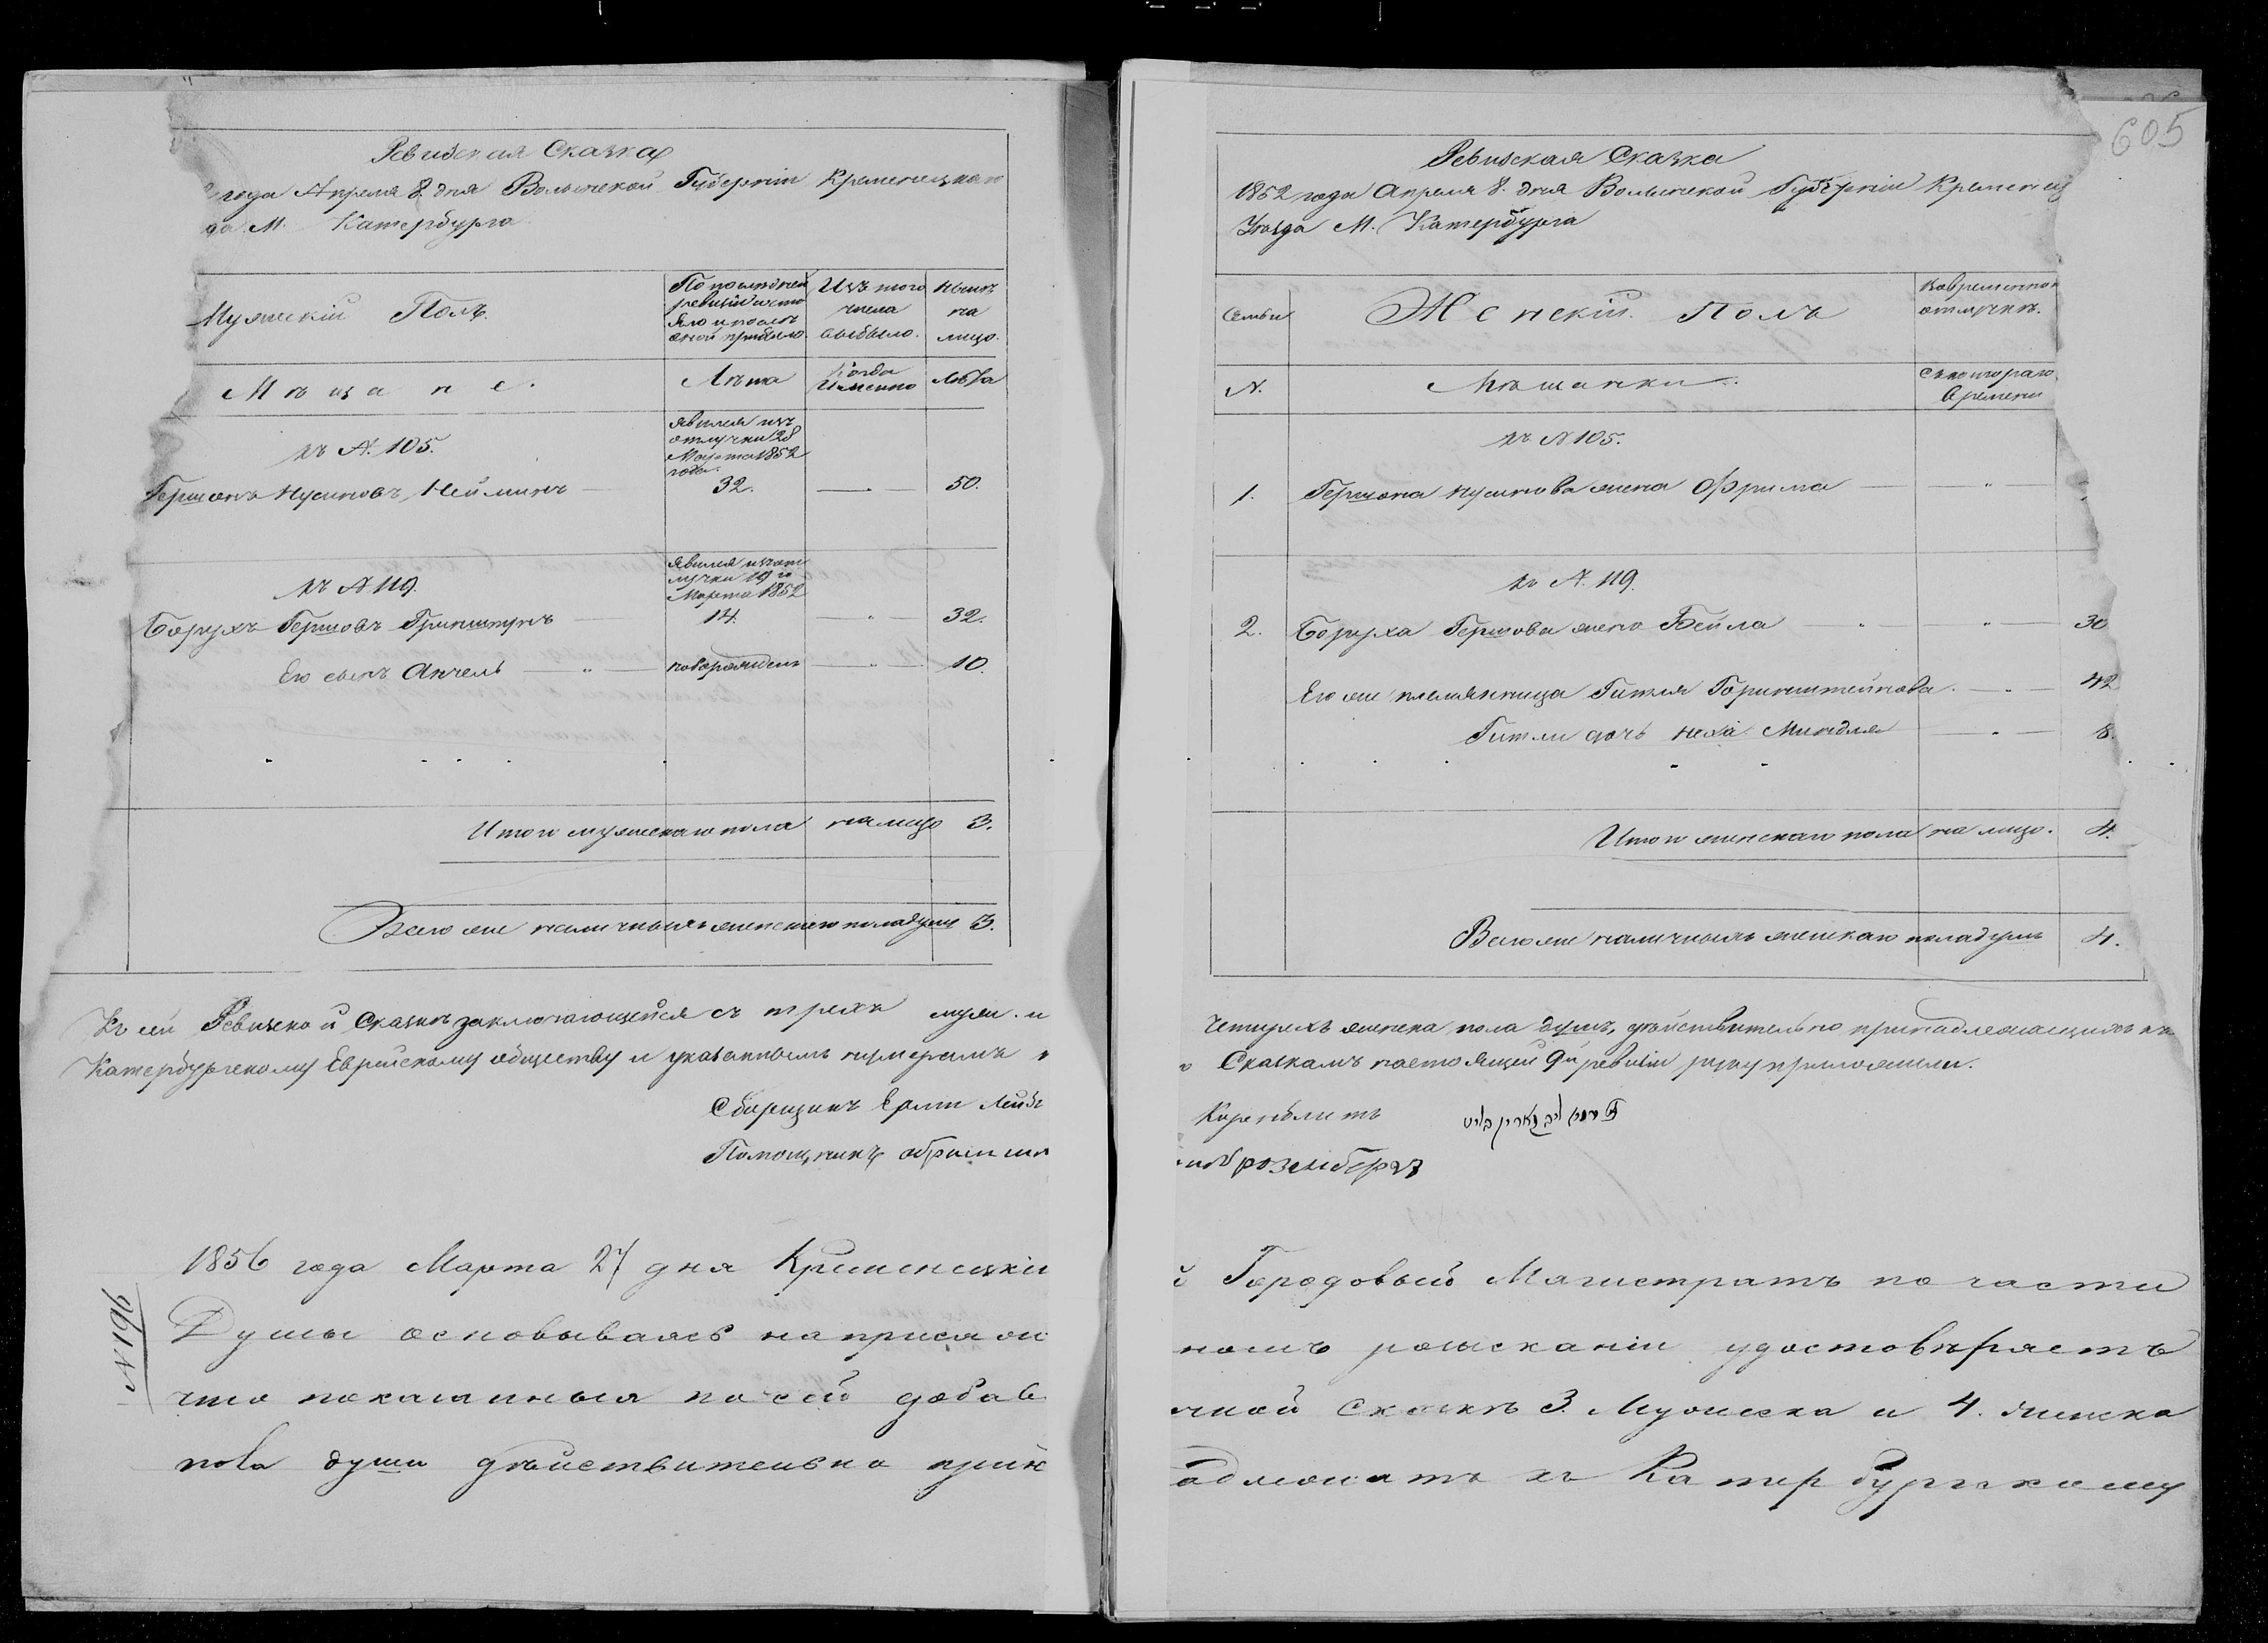 Ревизская Сказка
года Апреля 8. дня Волынской Губерніи Кременецкаго
да М. Катербурга
Мужескій Полъ.
По последней ревизіи состояло и после оной прибыло.
Изъ того числа выбыло.
Нынѣ на лицо.
Мѣщане.
Лѣта
Когда Именно
Лѣта
къ N. 105.
явился изъ отлучки 28 Марта 1852 года.
Гершонъ Нусимовъ Нейманъ
32.
50.
къ N 119.
явился изъ отлучки 19 го Марта 1852
Борухъ Гершовъ Гринштеинъ
14.
32.
Его сынъ Анчель
новорожденъ
10.
Итого мужескаго пола на лицо 3.
Всего же наличныхъ женскаго пола душъ 3.
Къ сей Ревизской Сказкѣ заключающейся съ трехъ муж. и
Катербургскому Еврейскому обществу и указаннымъ нумерамъ
Сборщикъ Ерли Лейбъ
Помощникъ абрам
1856 года Марта 27 дня Кременецкій
N 196
Думы основываясь на присяж
что показанныя по сей добав
пола души дѣйствительно прин
605
Ревизская Сказка
1852 года Апреля 8. дня Волынской Губерніи Кременец
Уѣзда М. Катербурга
Семьи
Женскій Полъ
Во временной отлучкѣ.
N.
Мѣщанки.
Съ котораго времени
къ N 105.
1. Гершона Нусимова жена Фрима
къ N. 119.
2. Боруха Гершова жена Бейла
30
Его же племянница Гитля Горинштейнова.
42
Гитли дочь Неха Миндля
8.
Итого женскаго пола на лицо. 4.
Всего же наличныхъ женскаго пола душъ 4.
Четырехъ женска пола душъ, дѣйствительно принадлежащихъ къ
Сказкамъ настоящей 9й ревизіи руку приложили.
Коренблитъ
розенбергъ
Городовый Магистратъ по части
номъ розысканіи удостовѣряетъ
чной Сказкѣ 3. Мужеска и 4. женска
адлежатъ къ Катербургскому